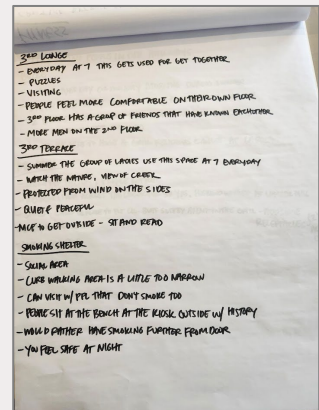 3RD LOUNGE
- EVERYDAY AT 7 THIS GETS USED FOR GET TOGETHER
- PUZZLES
- VISITING
- PEOPLE FEEL MORE COMFORTABLE ON THEIR OWN FLOOR
- 3RD FLOOR HAS A GROUP OF FRIENDS THAT HAVE KNOWN EACHOTHER
- MORE MEN ON THE 2ND FLOOR
3RD TERRACE
- SUMMER THE GROUP OF LADIES USE THIS SPACE AT 7 EVERYDAY
- WATCH THE NATURE, VIEW OF CREEK
- PROTECTED FROM WIND ON THE SIDES
- QUIET & PEACEFUL
- NICE TO GET OUTSIDE - SIT AND READ
SMOKING SHELTER
- SOCIAL AREA
- CURB WALKING AREA IS A LITTLE TOO NARROW
- CAN VISIT W/ PPL THAT DON'T SMOKE TOO
- PEOPLE SIT AT THE BENCH AT THE KIOSK OUTSIDE W/ HISTORY
- WOULD RATHER HAVE SMOKING FURTHER FROM DOOR
- YOU FEEL SAFE AT NIGHT